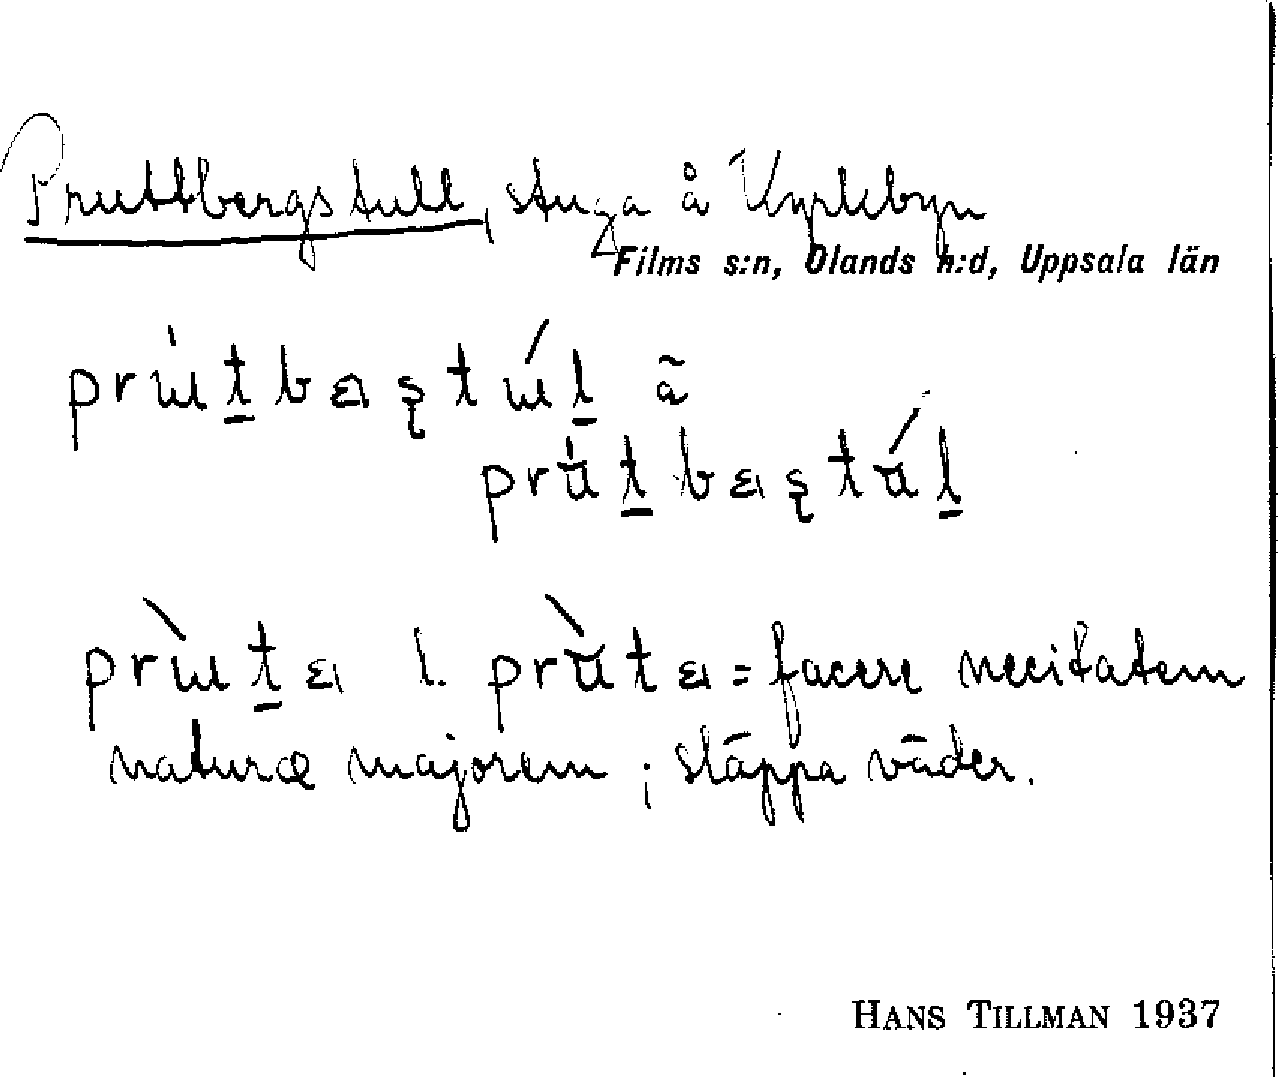 Pruttbergstull, stuga å Kyrkbyn
Films s:n, Olands h:d, Uppsala län
prɯ̀t̲bɐştɯ́l̲ ã
prùt̲bɐştúl̲
prɯ̀t̲ɐ l. prùtɐ = facere necitatem
naturæ majorem; släppa väder.
HANS TILLMAN 1937